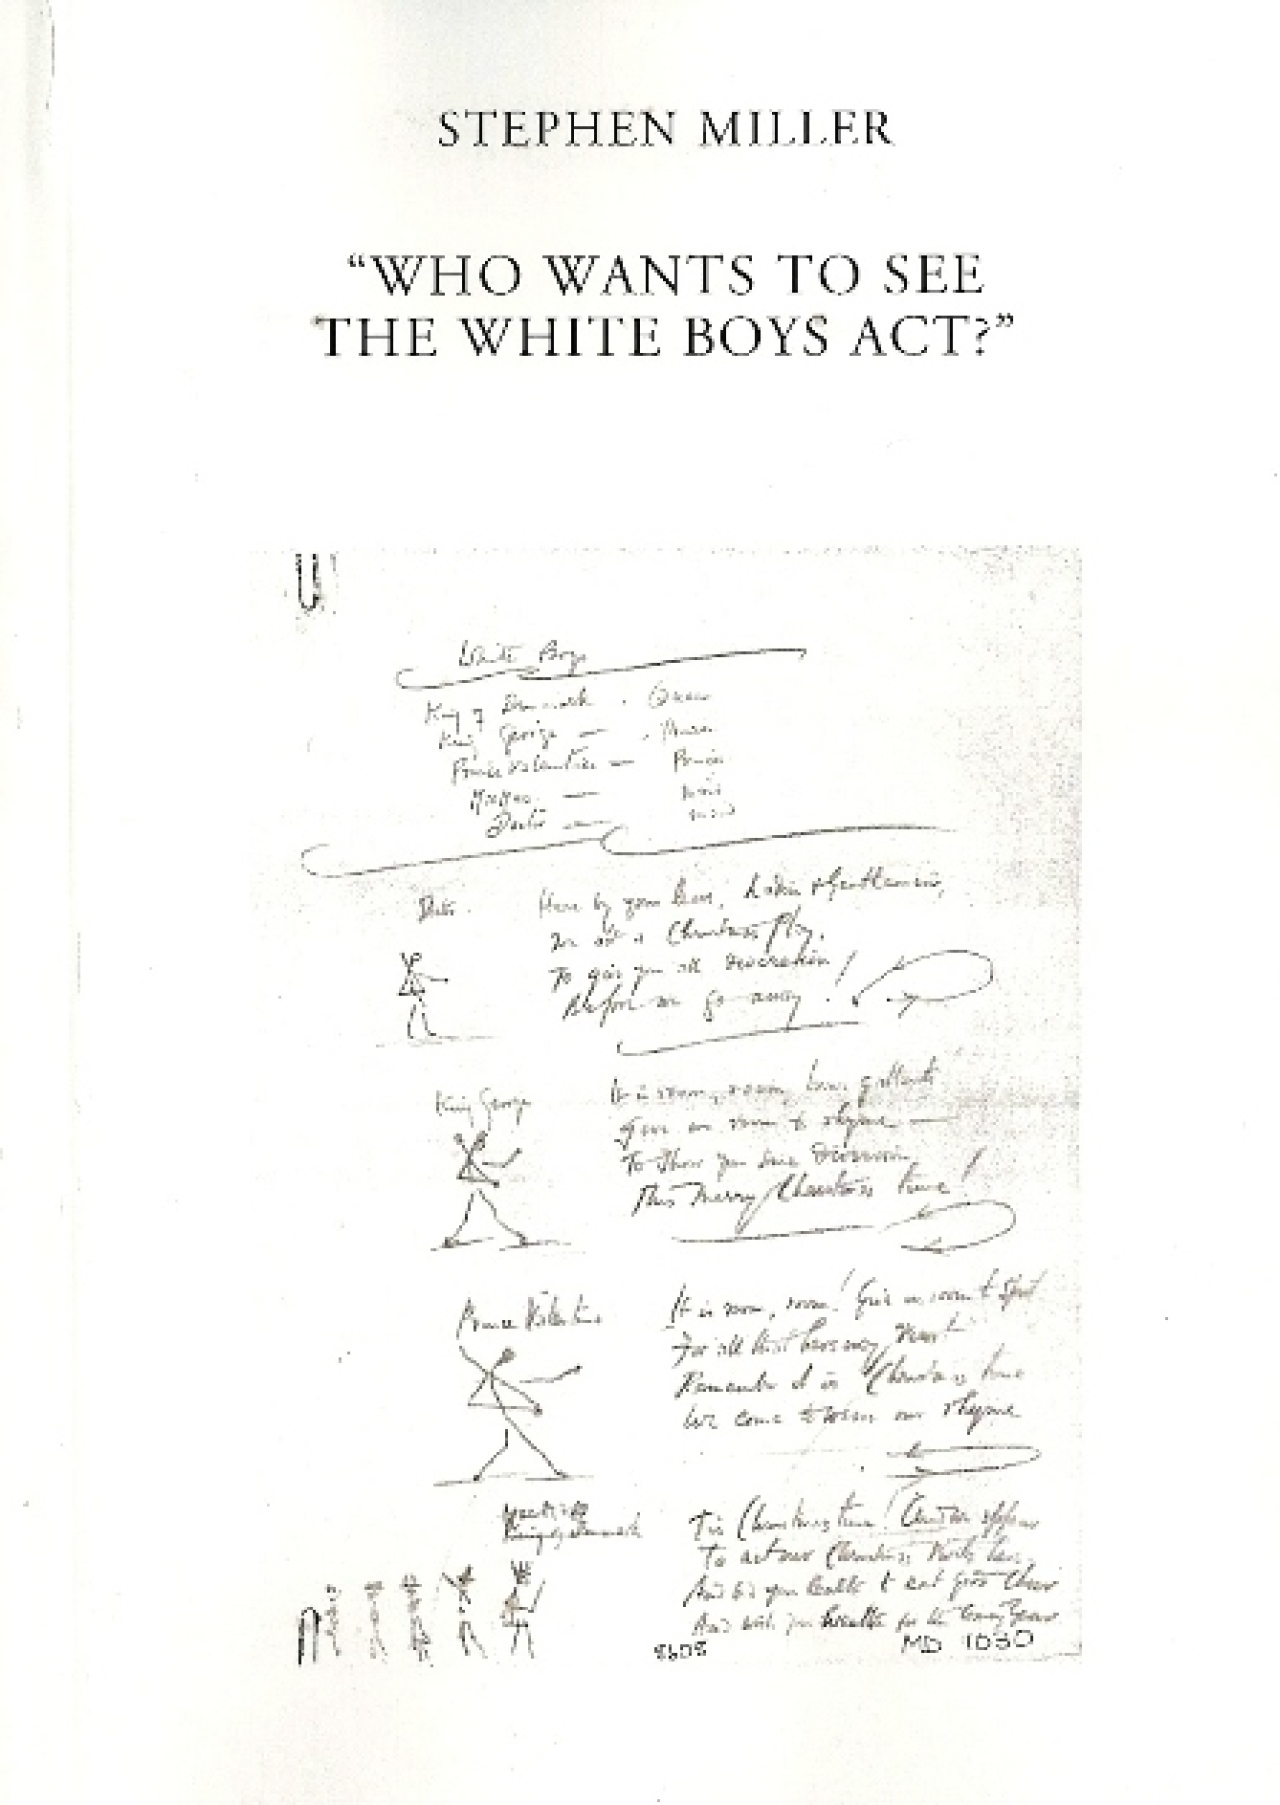 STEPHEN MILLER
“WHO WANTS TO SEE
THE WHITE BOYS ACT?”
White Boys
King of Denmark . Queen
King George —
Prince Valentine — Prince
Doctor —
Here by your leave, Ladies & Gentlemen,
we act a Christmas Play.
To give you all
Before we go away!
King George
It is room, room, brave gallants
Give us room to rhyme —
To show you some Diversion
This Merry Christmas time!
Prince Valentine
It is room, room! Give us room to
For all
Remember it is Christmas time
We come to our rhyme
King of Denmark
Tis Christmas time!
To act our Christmas here
And bid you to eat good cheer
And wish you health for the coming Year
8608
MD 1030